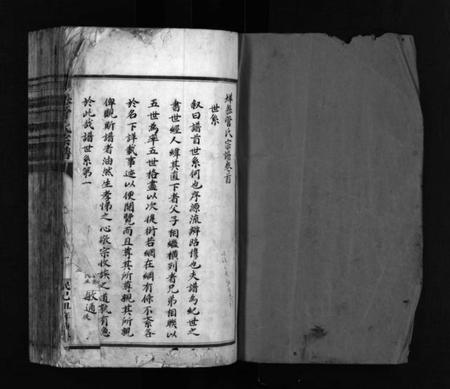 管氏宗譜卷之首
世系
叙曰譜首世系何也序源流辯昭穆也夫譜為紀世之
書世經人緯其直下者父子相繼横列者兄弟相聯以
五世為率五世格盡以次復衍若網在綱有條不紊各
於名下詳載事迹以便閱覽而且尊其所尊親其所親
俾覩斯譜者油然生孝悌之心敬宗收族之道孰有急
於此哉譜世系第一
敏通